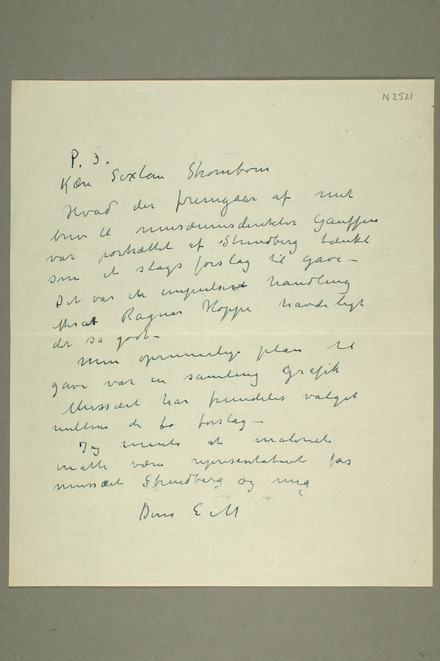 N 2521
P. S.
Kære Sixten Strømbom
Hvad der fremgaar af mit
brev til musæumsdirektør Gauffin
var portrættet af Strindberg tænkt
som et slags forslag til gave –
Det var en impulsiv handling
Ragnar Hoppe havde ligt
det så godt –
Min oprinnelige plan til
gave var en samling Grafik
Mussæet har fremdeles valget
mellem de to forslag –
Jeg mente at maleriet
måtte være representativt for
mussæet Strindberg og mig
Deres E M